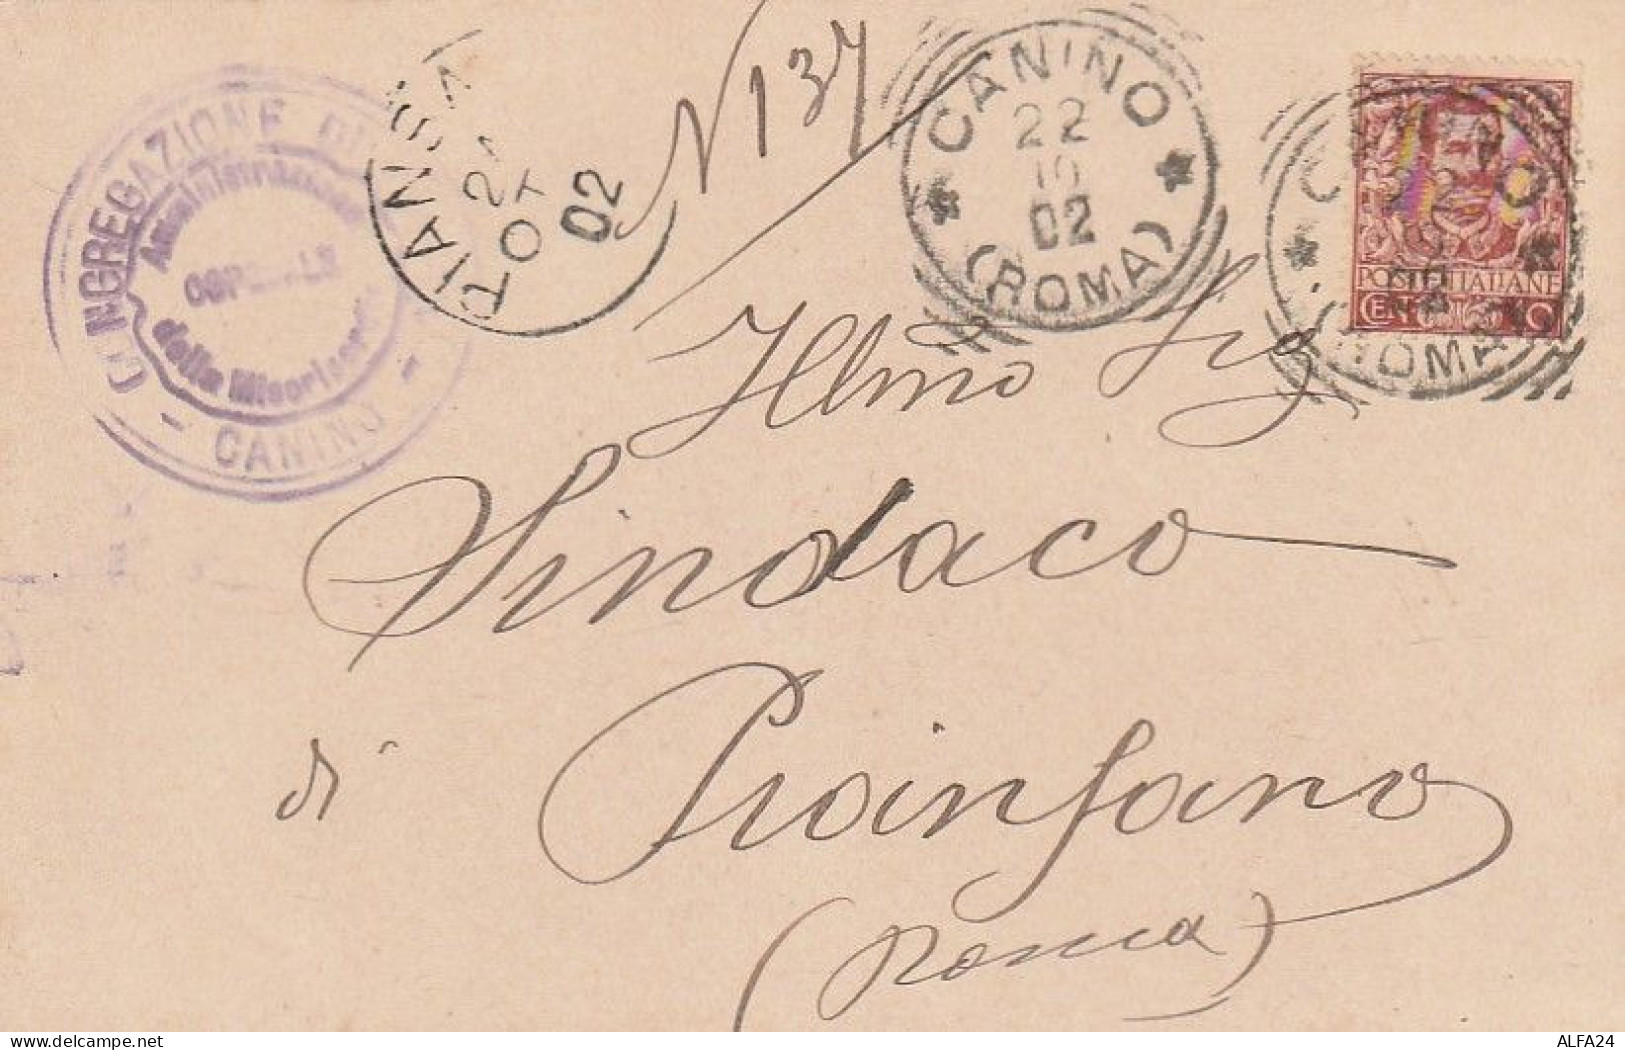 CONGREGAZIONE DI
Amministrazione
della Misericordia
- CANINO -
PIANSA
OTT
02
N 137
CANINO
22
10
02
(ROMA)
POSTE ITALIANE
CENT.
ROMA
Illmo Sig
Sindaco
di Piansano
(Roma)
ALFA24